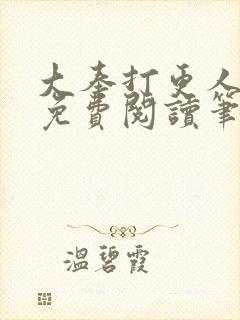 大奉打更人
免費閱讀筆
溫碧霞